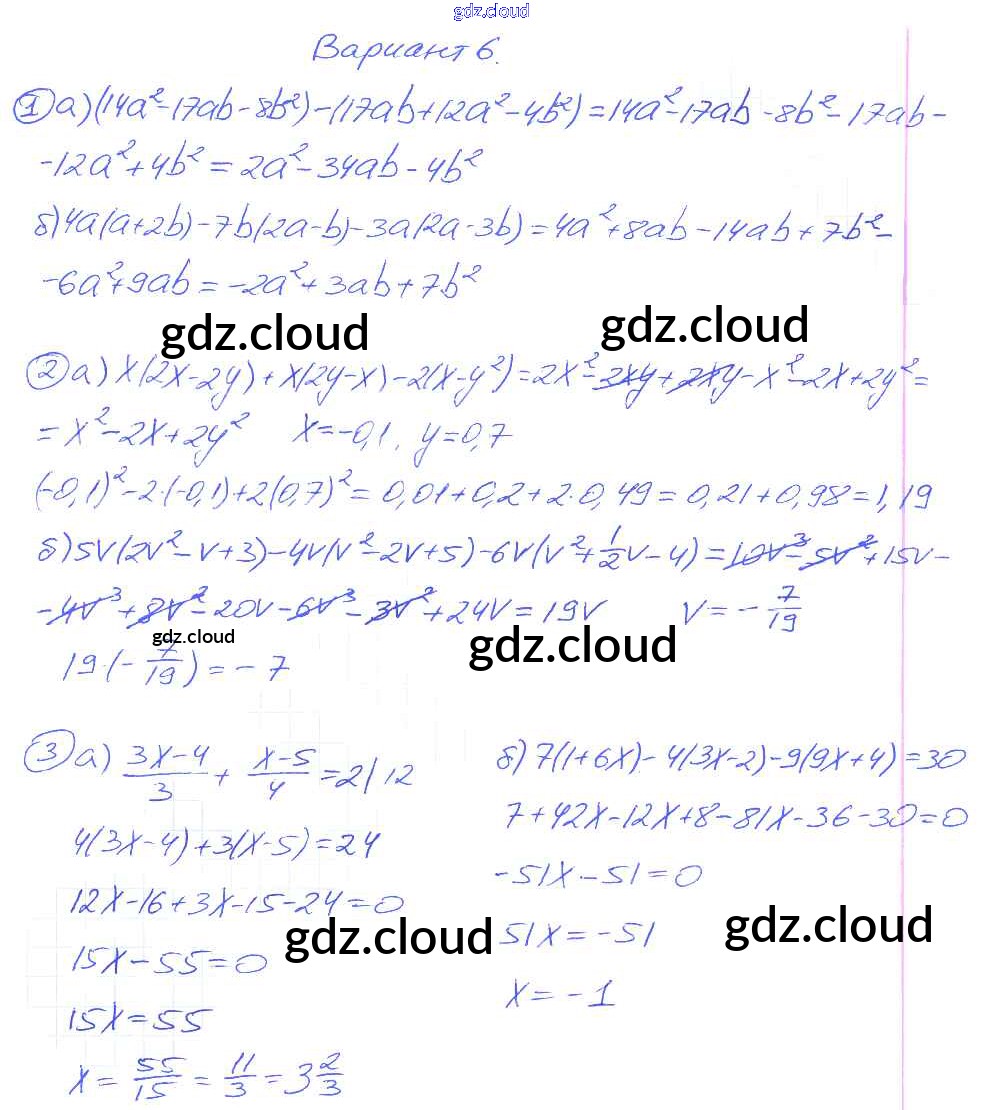 gdz.cloud
Вариант 6.
① а) (14a²-17ab-8b²)-(17ab+12a²-4b²)=14a²-17ab-8b²-17ab-
-12a²+4b²=2a²-34ab-4b²
б) 4a(a+2b)-7b(2a-b)-3a(2a-3b)=4a²+8ab-14ab+7b²-
-6a²+9ab=-2a²+3ab+7b²
gdz.cloud gdz.cloud
② а) x(2x-2y)+x(2y-x)-2(x-y²)=2x²-2xy+2xy-x²-2x+2y²=
=x²-2x+2y² x=-0,1, y=0,7
(-0,1)²-2·(-0,1)+2(0,7)²=0,01+0,2+2·0,49=0,21+0,98=1,19
б) 5v(2v²-v+3)-4v(v²-2v+5)-6v(v²+1/2v-4)=10v³-5v²+15v-
-4v³+8v²-20v-6v³-3v²+24v=19v v=-7/19
gdz.cloud gdz.cloud
19·(-7/19)=-7
③ а) (3x-4)/3 + (x-5)/4 =2|12
4(3x-4)+3(x-5)=24
12x-16+3x-15-24=0
gdz.cloud
15x-55=0
15x=55
x=55/15=11/3=3 2/3
б) 7(1+6x)-4(3x-2)-9(9x+4)=30
7+42x-12x+8-81x-36-30=0
-51x-51=0
gdz.cloud
51x=-51
x=-1